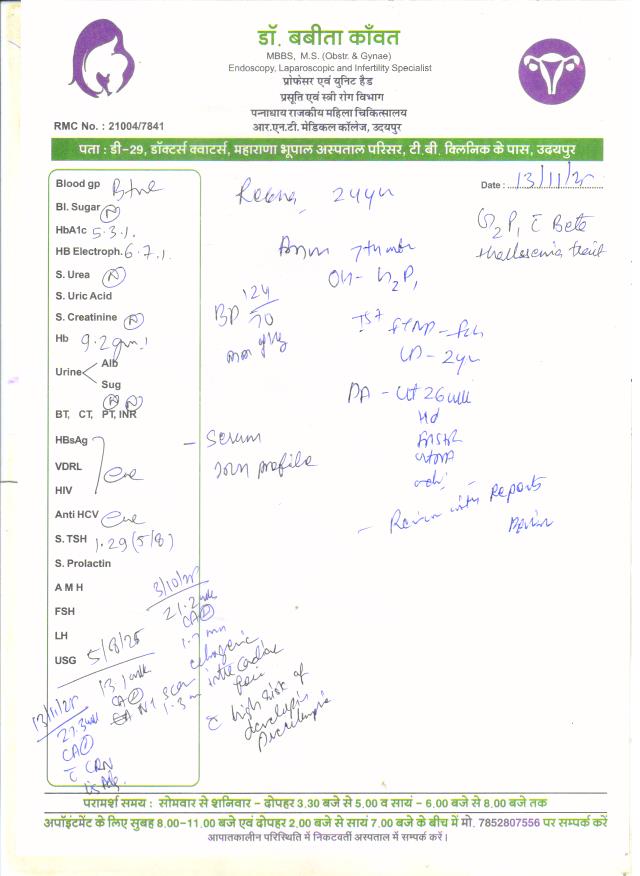 डॉ. बबीता काँवत
MBBS, M.S. (Obstr. & Gynae)
Endoscopy, Laparoscopic and Infertility Specialist
प्रोफेसर एवं युनिट हैड
प्रसूति एवं स्त्री रोग विभाग
पन्नाधाय राजकीय महिला चिकित्सालय
RMC No. : 21004/7841
आर.एन.टी. मेडिकल कॉलेज, उदयपुर
पता : डी-29, डॉक्टर्स क्वाटर्स, महाराणा भूपाल अस्पताल परिसर, टी.बी. क्लिनिक के पास, उदयपुर
Date : 13/11/25
24yr
G2P1 c Beta
thallasemia trait
Blood gp B+ve
Bl. Sugar N
HbA1c 5.3%
HB Electroph. 6.7%
S. Urea N
S. Uric Acid
S. Creatinine N
Hb 9.2gm%
Urine
Alb
Sug
N N
BT, CT, PT, INR
HBsAg
VDRL
HIV
-ve
Anti HCV -ve
S. TSH 1.29 (5/8)
S. Prolactin
A M H
FSH
LH
USG 5/8/25
7th
OH - G2P1
BP 124/70
mm Hg
1st FTND
LD - 2yr
PA - Ut 26
- Serum
Iron profile
- Review with Reports
3/10/25
21.2
1.7 mm
echogenic
intra cardiac
foci
c high risk of
developing
Preeclampsia
13.1
NT scan
13/11/25
27.3
c CRN
परामर्श समय : सोमवार से शनिवार – दोपहर 3.30 बजे से 5.00 व सायं – 6.00 बजे से 8.00 बजे तक
अपॉइंटमेंट के लिए सुबह 8.00–11.00 बजे एवं दोपहर 2.00 बजे से सायं 7.00 बजे के बीच में मो. 7852807556 पर सम्पर्क करें
आपातकालीन परिस्थिति में निकटवर्ती अस्पताल में सम्पर्क करें।